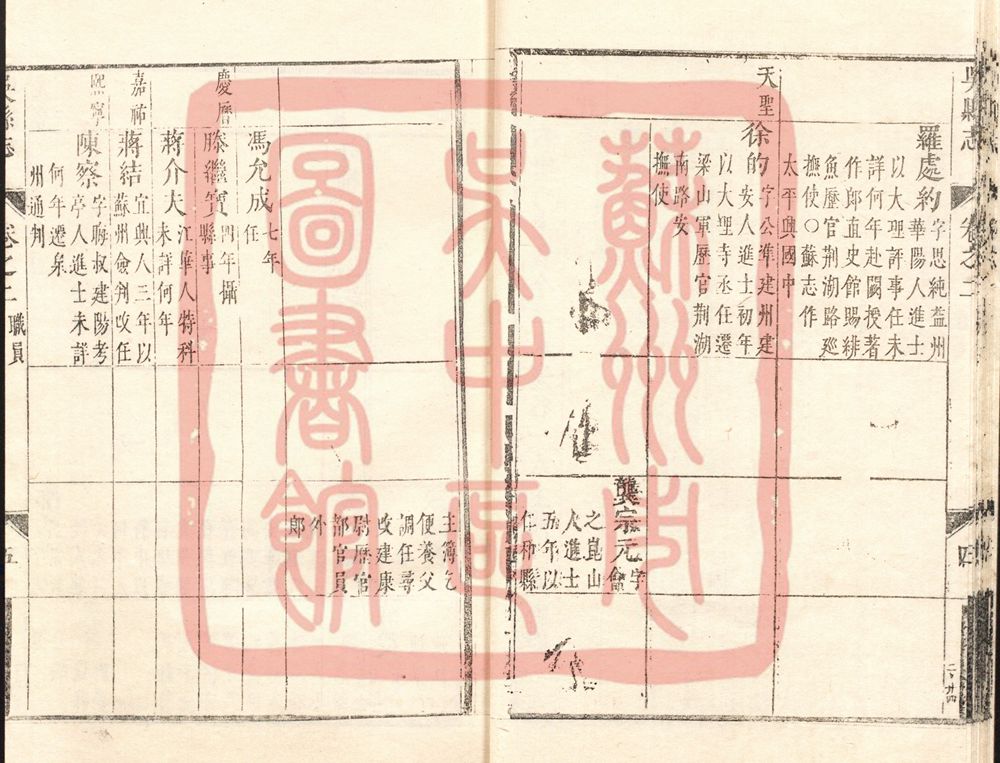 吳縣志
卷之二
四
羅處約
字思純益州
華陽人進士
以大理評事任未
詳何年赴闕授著
作郎直史館賜緋
魚歷官荆湖路廵
撫使○蘇志作
太平興國中
天聖
徐的
字公準建州建
安人進士初年
以大理寺丞任遷
梁山軍歷官荆湖
南路安
撫使
龔宗元
字會
之崑山
人進士
五年以
仁和縣
主簿乞
便養父
調任尋
改建康
尉歷官
部官員
外
郎
馮允成
七年
任
慶曆
滕繼實
四年攝
縣事
蔣介夫
江華人特科
未詳何年
嘉祐
蔣結
宜興人三年以
蘇州僉判改任
熙寧
陳察
字晦叔建陽考
亭人進士未詳
何年遷泉
州通判
卷之二
職員
五
二、廿四
蘇州市
吳中區
圖書館